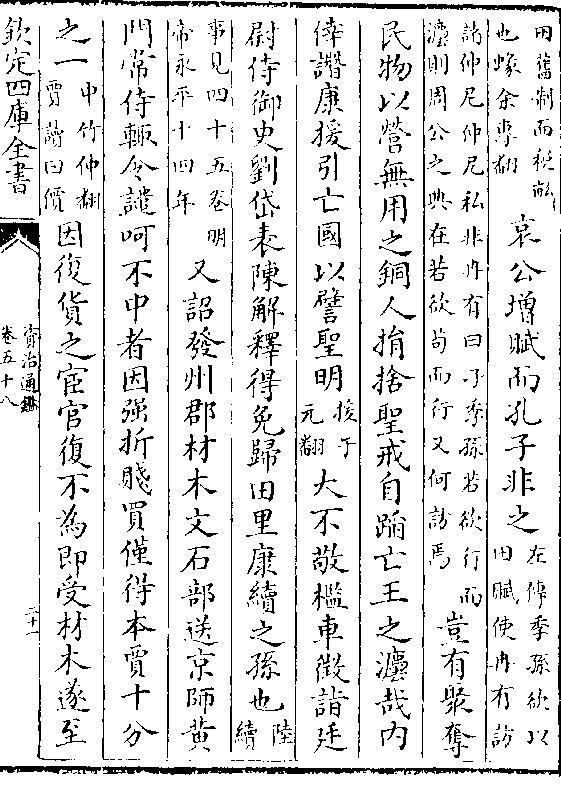 田舊制而稅畝
也蟓余專翻
哀公增賦而孔子非之
左傳季孫欲以
田賦使冉有訪
諸仲尼仲尼私非冉有曰子季孫若欲行而
灋則周公之典在若欲苟而行又何訪焉
豈有聚奪
民物以營無用之銅人捐捨聖戒自蹈亡王之灋哉内
倖譖康援引亡國以譬聖明
援于
元翻
大不敬檻車徵詣廷
尉侍御史劉岱表陳解釋得免歸田里康續之孫也
陸
續
事見四十五卷明
帝永平十四年
又詔發州郡材木文石部送京師黄
門常侍輒令譴呵不中者因强折賤買僅得本賈十分
之一
中竹仲翻
賈讀曰價
因復貨之宦官復不為即受材木遂至
欽定四庫全書
資治通鑑
卷五十八